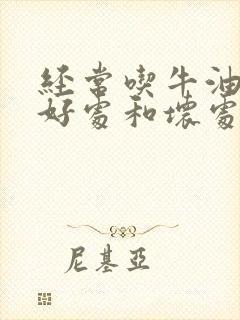 经常喫牛油
好處和壞處
尼基亞